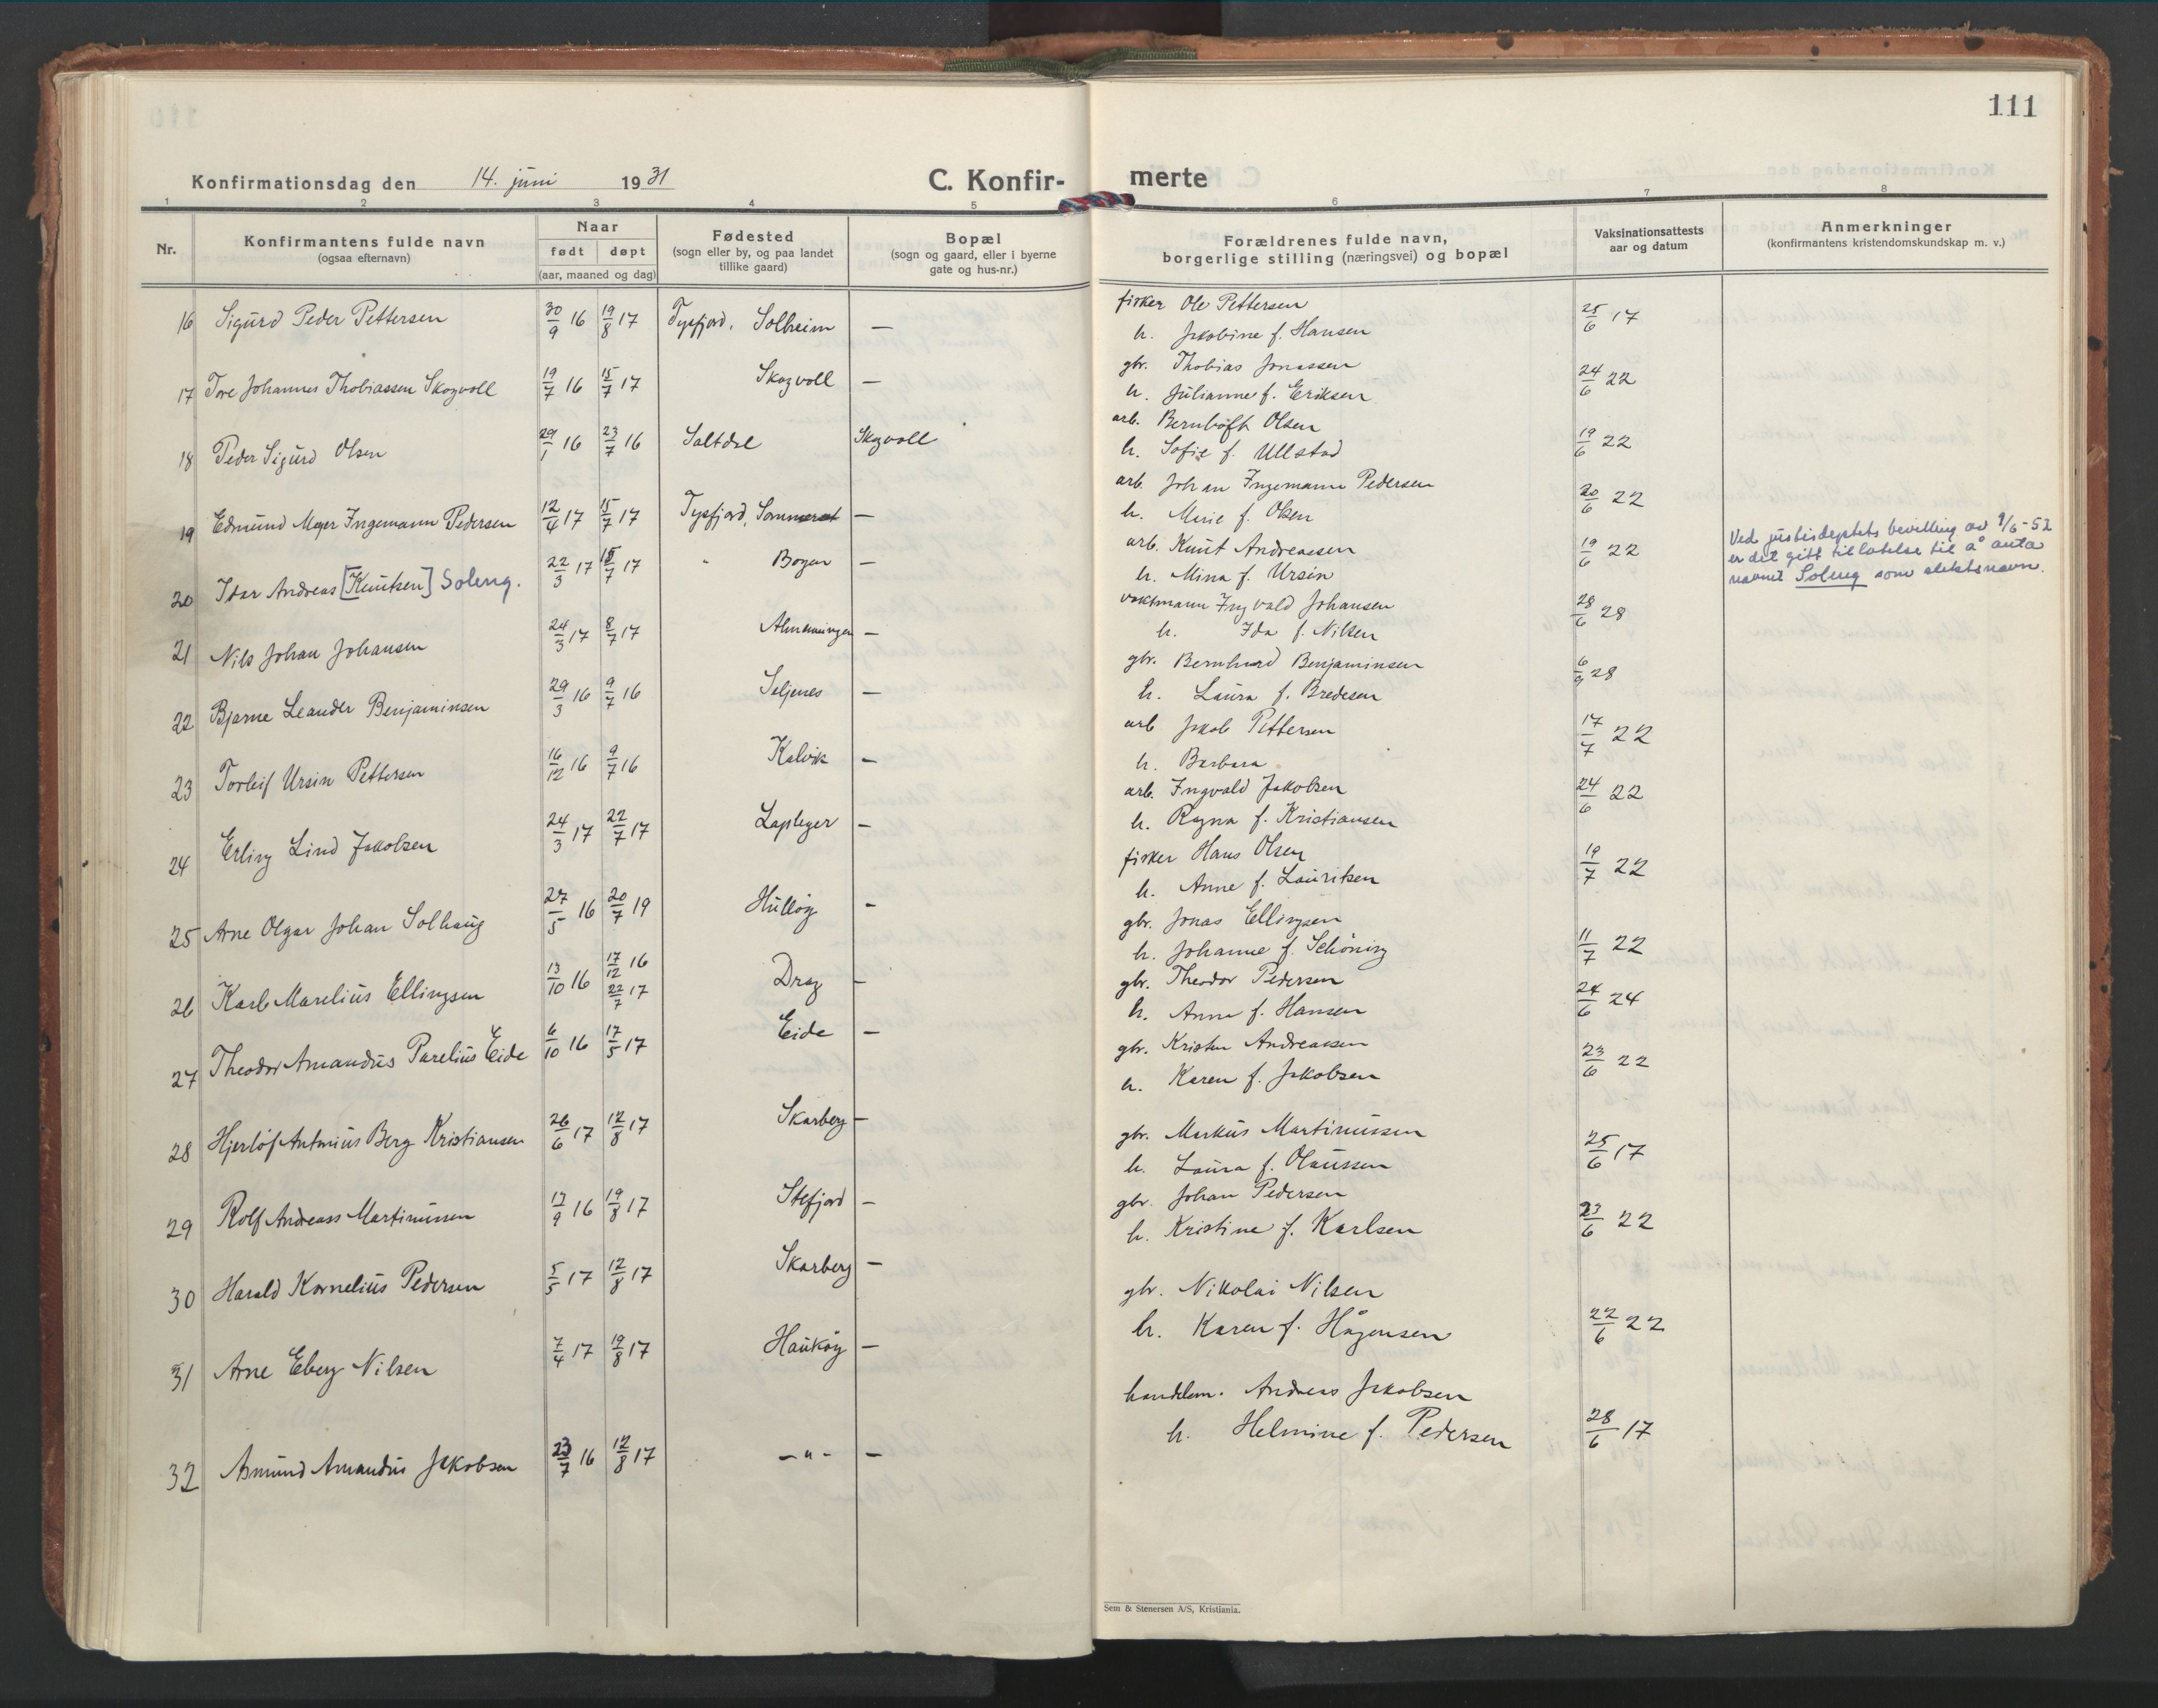 111
Konfirmationsdag den 14. juni 1931 C. Konfir- merte
1 2 3 4 5 6 7 8
Nr.
Konfirmantens fulde navn
(ogsaa efternavn)
Naar
født døpt
(aar, maaned og dag)
Fødested
(sogn eller by, og paa landet
tillike gaard)
Bopæl
(sogn og gaard, eller i byerne
gate og hus-nr.)
Forældrenes fulde navn,
borgerlige stilling (næringsvei) og bopæl
Vaksinationsattests
aar og datum
Anmerkninger
(konfirmantens kristendomskundskap m. v.)
16 Sigurd Peder Pettersen 30/9 16 19/8 17 Tysfjord, Solheim — fisker Ole Pettersen 25/6 17
h. Jakobine f. Hansen
17 Tore Johannes Thobiassen Skogvoll 19/7 16 15/7 17 Skogvoll — gbr. Thobias Jonassen 24/6 22
h. Julianne f. Eriksen
18 Peder Sigurd Olsen 29/1 16 23/7 16 Saltdal Skogvoll arb. Bernhoft Olsen 19/6 22
h. Sofie f. Ullstad
19 Edmund Meyer Ingemann Pedersen 12/4 17 15/7 17 Tysfjord, Sommerset — arb. Johan Ingemann Pedersen 20/6 22
h. Marie f. Olsen
20 Idar Andreas [Knutsen] Soleng. 22/3 17 15/7 17 " Bogen — arb. Knut Andreassen 19/6 22
h. Mina f. Ursin
Ved justisdeptets bevilling av 9/6-52
er det gitt tillatelse til å anta
navnet Soleng som slektsnavn.
21 Nils Johan Johansen 24/3 17 8/7 17 Almenningen — vaktmann Ingvald Johansen 28/6 28
h. Ida f. Nilsen
22 Bjarne Leander Benjaminsen 29/3 16 9/7 16 Seljenes — gbr. Bernhard Benjaminsen 6/9 28
h. Laura f. Bredesen
23 Torleif Ursin Pettersen 16/12 16 9/7 16 Kalvik — arb Jakob Pettersen 17/7 22
h. Barbara
24 Erling Lind Jakobsen 24/3 17 22/7 17 Lapleger — arb. Ingvald Jakobsen 24/6 22
h. Ragna f. Kristiansen
25 Arne Olgar Johan Solhaug 27/5 16 20/7 19 Hulløy - fisker Hans Olsen 19/7 22
h. Anne f. Lauritsen
26 Karl Marelius Ellingsen 13/10 16 17/12 16 22/7 17 Drag — gbr. Jonas Ellingsen 11/7 22
h. Johanne f. Schöning
27 Theodor Amandus Parelius Eide 6/10 16 17/5 17 Eide — gbr. Theodor Pedersen 24/6 24
h. Anna f. Hansen
28 Hjerløf Antonius Berg Kristiansen 26/6 17 12/8 17 Skarberg — gbr. Kristen Andreassen 23/6 22
h. Karen f. Jakobsen
29 Rolf Andreass Martinussen 17/9 16 19/8 17 Stefjord — gbr. Markus Martinussen 25/6 17
h. Laura f. Olaussen
30 Harald Kornelius Pedersen 5/5 17 12/8 17 Skarberg — gbr. Johan Pedersen 23/6 22
h. Kristine f. Karlsen
31 Arne Eberg Nilsen 7/4 17 19/8 17 Haukøy — gbr. Nikolai Nilsen 22/6 22
h. Karen f. Hågensen
32 Asmund Amandus Jakobsen 23/7 16 12/8 17 —"- — handelsm. Andreas Jakobsen 28/6 17
h. Helmine f. Pedersen
Sem & Stenersen A/S, Kristiania.